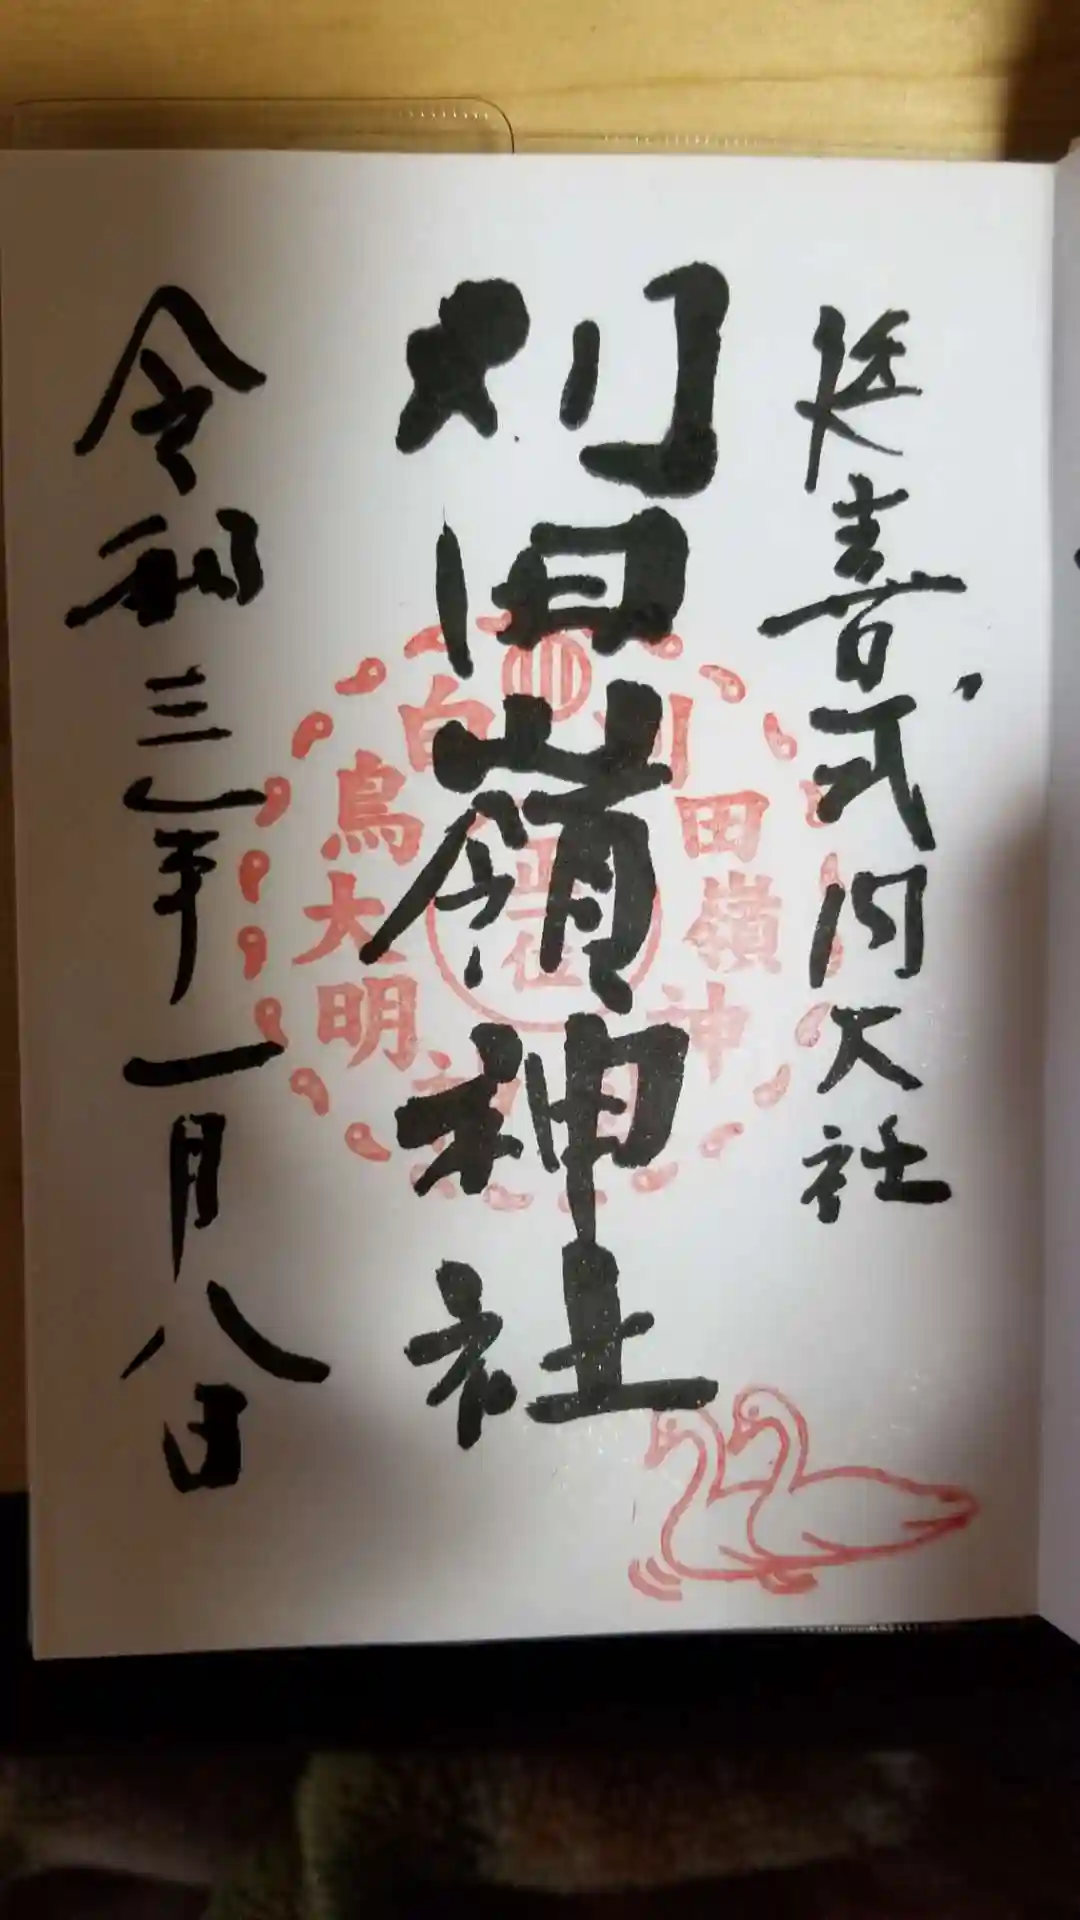 延喜式内大社
刈田嶺神社
令和三年一月八日
刈田嶺神社
白鳥大明神
正一位